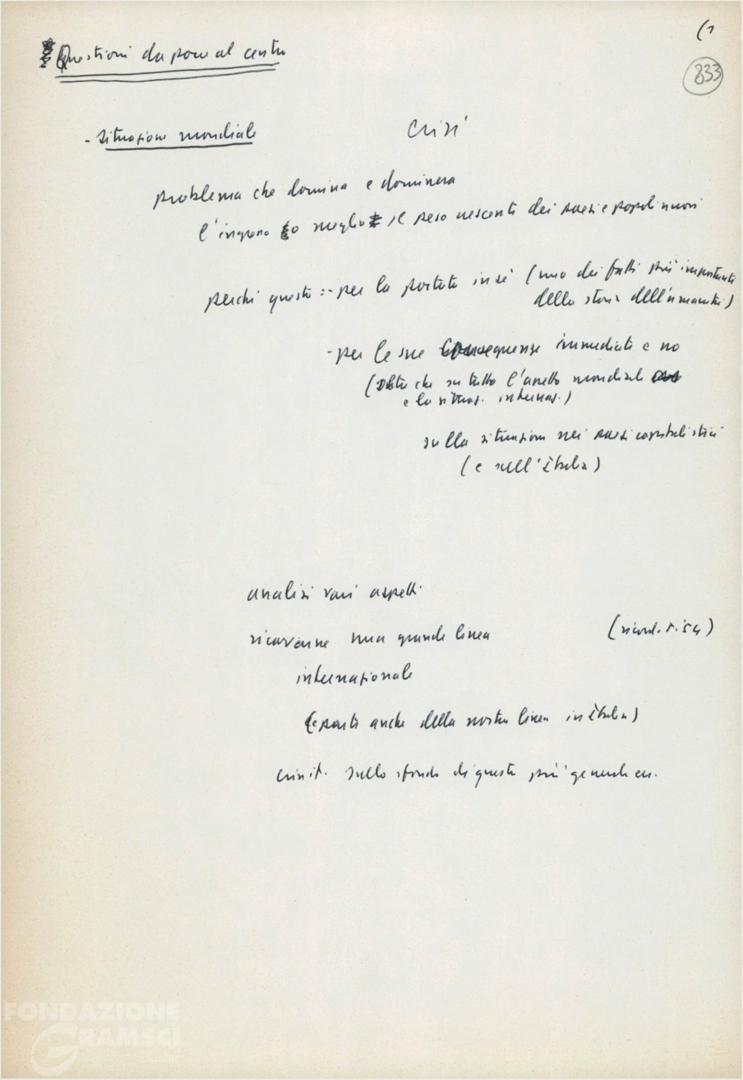 (1
833
Questioni da porre al centro
- situazione mondiale crisi
problema che domina e dominerà
l'ingresso o meglio il peso crescente dei paesi e popoli nuovi
perché questo: - per la portata in sé (uno dei fatti più importanti
della storia dell'umanità)
- per le sue conseguenze immediate e no
(oltre che su tutto l'assetto mondiale
e la situaz. internaz.)
sulla situazione nei paesi capitalistici
(e sull'Italia)
analisi vari aspetti
ricavarne una grande linea (ricord. T. 54)
internazionale
(e parte anche della nostra linea in Italia)
sullo sfondo di questa più generale
FONDAZIONE
GRAMSCI